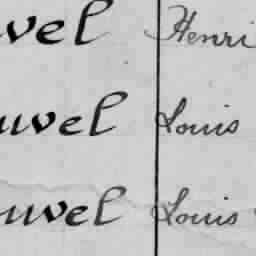 vel Henri
uvel Louis
uvel Louis